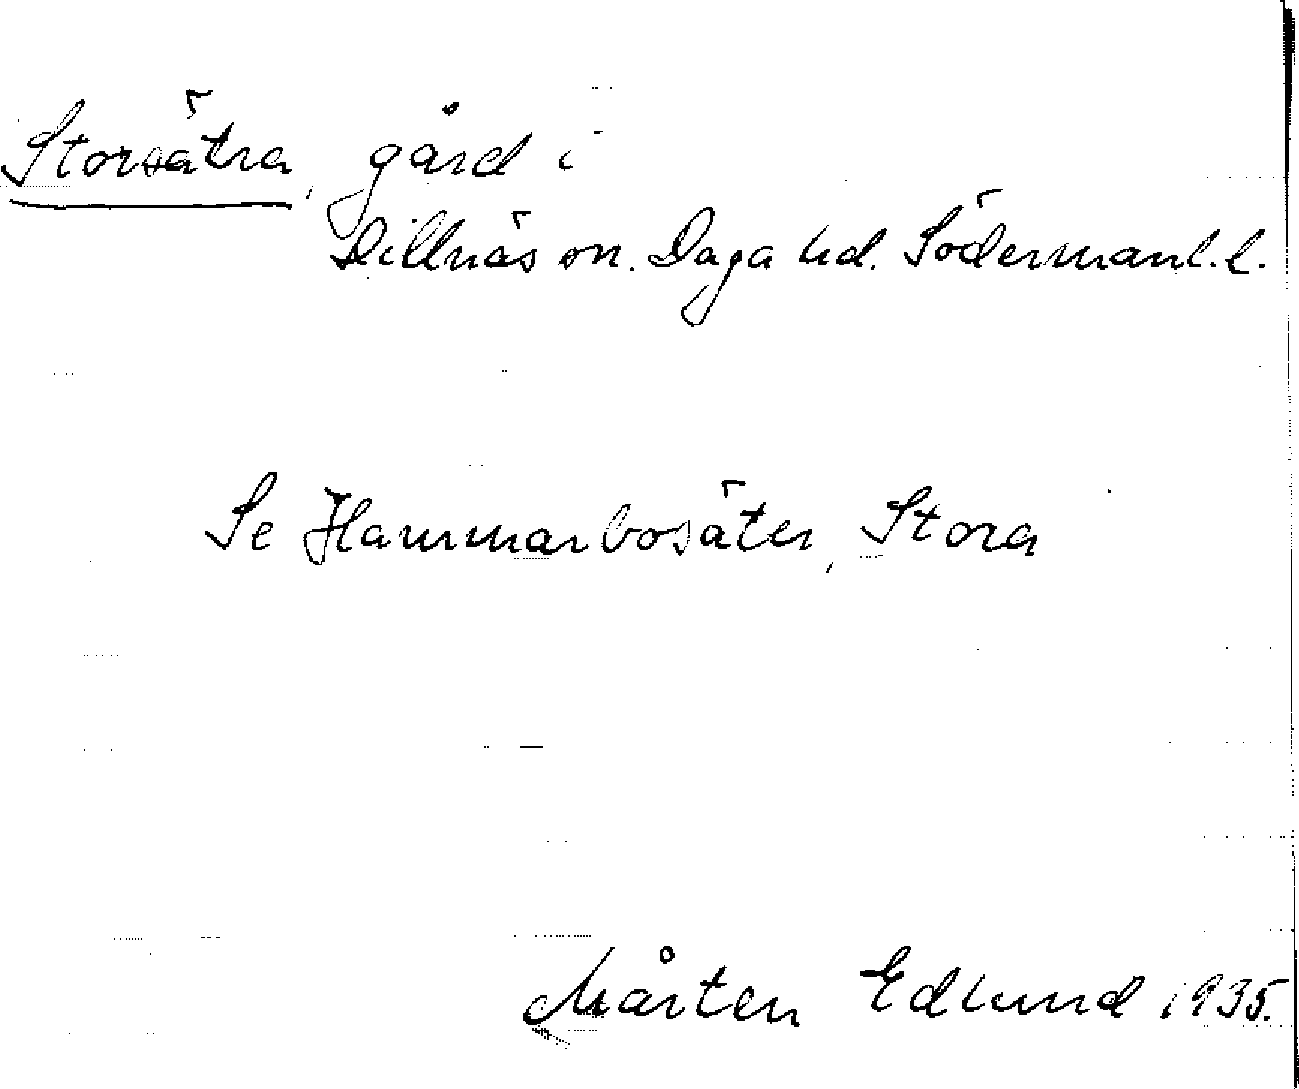 Storsätra, gård i
Dillnäs sn. Daga hd. Södermanl. l.
Se Hammarbosäter, Stora
Mårten Edlund 1935.